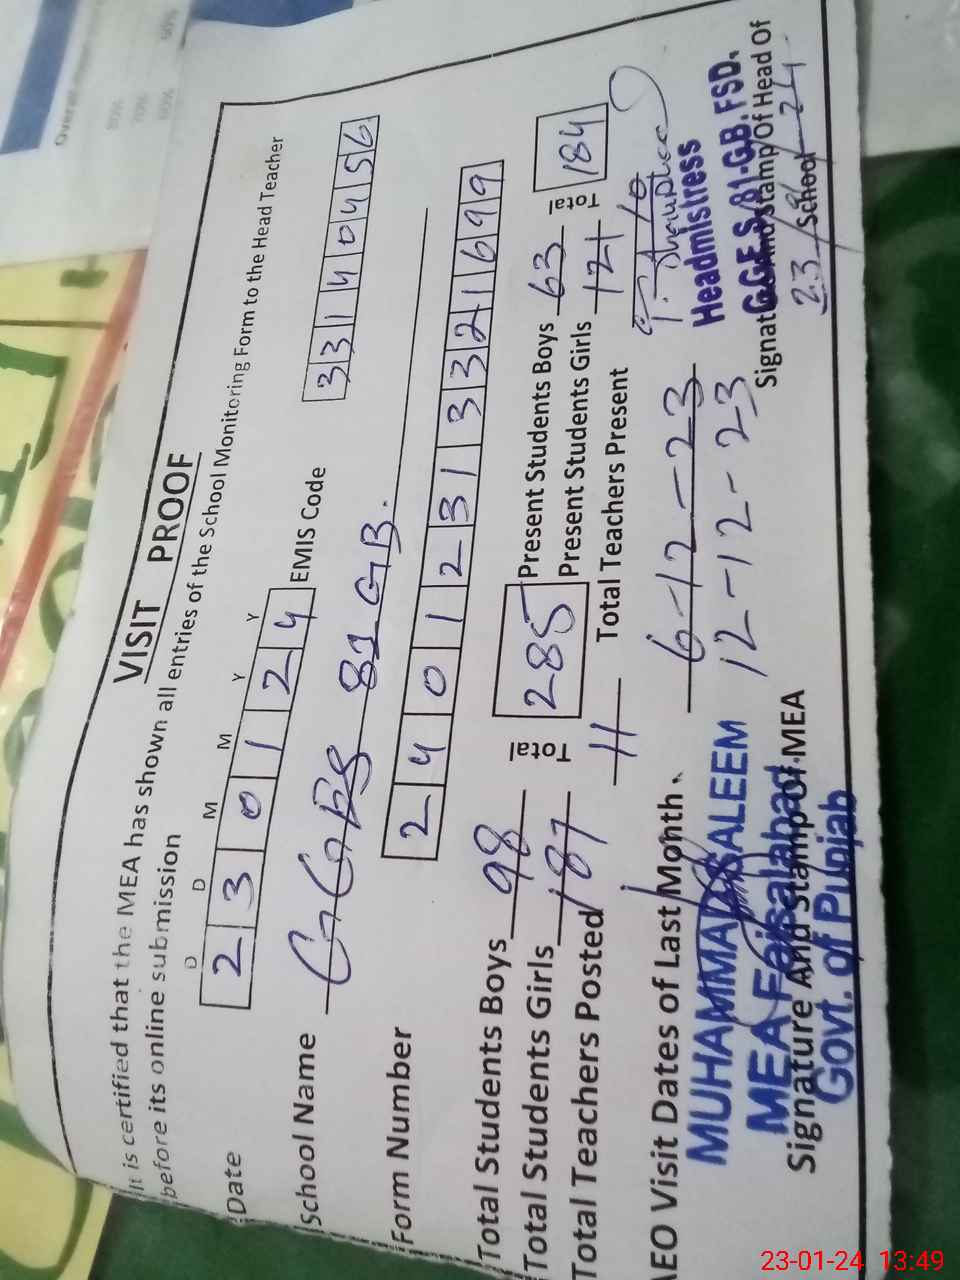 VISIT PROOF
It is certified that the MEA has shown all entries of the School Monitoring Form to the Head Teacher
before its online submission
D D M M Y Y
Date 2 3 0 1 2 4 EMIS Code 3 3 1 4 0 4 5 6
School Name GGES 81 GB.
Form Number 2 4 0 1 2 3 1 3 3 2 1 6 9 9
Total Students Boys 98 Total 285 Present Students Boys 63 Total 184
Total Students Girls 187 Present Students Girls 121
Total Teachers Posted 11 Total Teachers Present 10
AEO Visit Dates of Last Month. 6-12-23
12-12-23
MUHAMMAD SALEEM
MEA Faisalabad
Govt. of Punjab
Signature And Stamp Of MEA
Headmistress
G.G.E.S 81-G.B. FSD.
Signature And Stamp Of Head Of
School
23/ /24
23-01-24 13:49